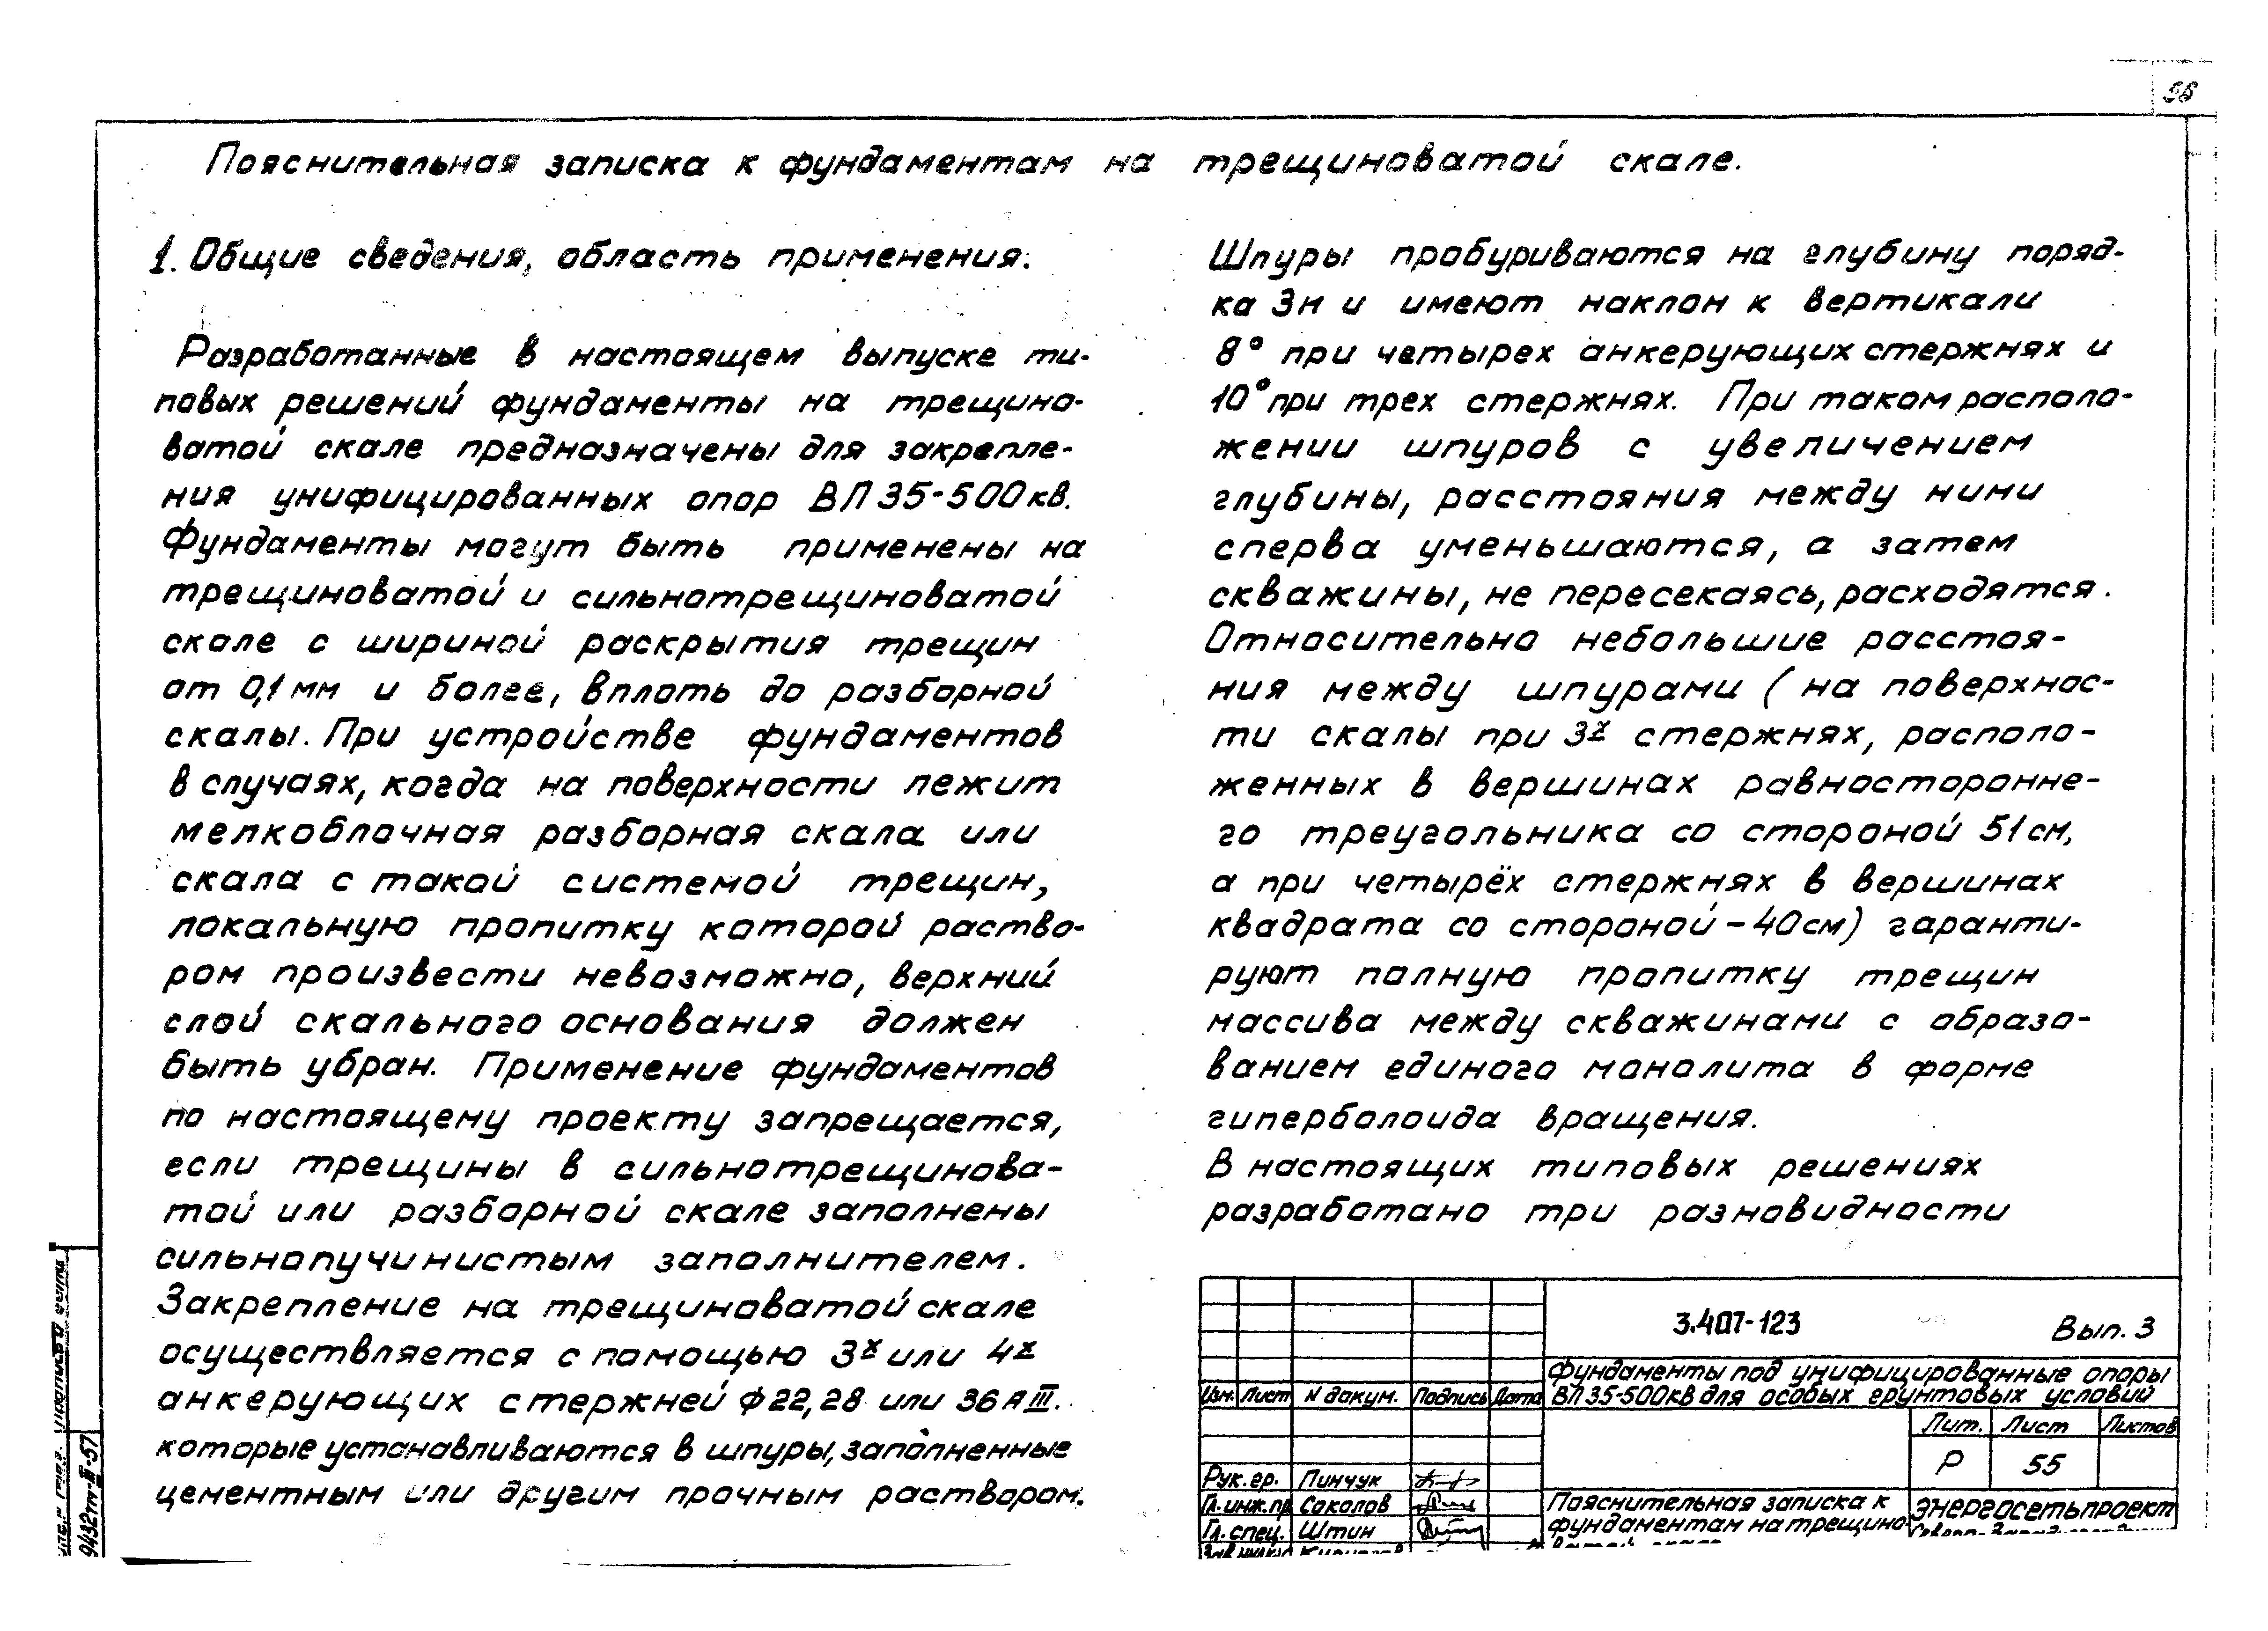 56
Пояснительная записка к фундаментам на трещиноватой скале.
1. Общие сведения, область применения.
Разработанные в настоящем выпуске ти-
повых решений фундаменты на трещино-
ватой скале предназначены для закрепле-
ния унифицированных опор ВЛ 35-500кв.
Фундаменты могут быть применены на
трещиноватой и сильнотрещиноватой
скале с шириной раскрытия трещин
от 0,1 мм и более, вплоть до разборной
скалы. При устройстве фундаментов
в случаях, когда на поверхности лежит
мелкоблочная разборная скала или
скала с такой системой трещин,
локальную пропитку которой раство-
ром произвести невозможно, верхний
слой скального основания должен
быть убран. Применение фундаментов
по настоящему проекту запрещается,
если трещины в сильнотрещинова-
той или разборной скале заполнены
сильнопучинистым заполнителем.
Закрепление на трещиноватой скале
осуществляется с помощью 3х или 4х
анкерующих стержней ф 22, 28 или 36 А III.
которые устанавливаются в шпуры, заполненные
цементным или другим прочным раствором.
Шпуры пробуриваются на глубину поряд-
ка 3м и имеют наклон к вертикали
8° при четырех анкерующих стержнях и
10° при трех стержнях. При таком располо-
жении шпуров с увеличением
глубины, расстояния между ними
сперва уменьшаются, а затем
скважины, не пересекаясь, расходятся.
Относительно небольшие расстоя-
ния между шпурами (на поверхнос-
ти скалы при 3х стержнях, располо-
женных в вершинах равносторонне-
го треугольника со стороной 51 см,
а при четырёх стержнях в вершинах
квадрата со стороной - 40 см) гаранти-
руют полную пропитку трещин
массива между скважинами с образо-
ванием единого монолита в форме
гиперболоида вращения.
В настоящих типовых решениях
разработано три разновидности
3.407-123 Вып. 3
Фундаменты под унифицированные опоры
ВЛ 35-500кВ для особых грунтовых условий
Изм. Лист N докум. Подпись Дата
Лит. Лист Листов
Р 55
Рук. гр. Пинчук
Гл. инж. пр Соколов
Гл. спец. Штин
Пояснительная записка к
фундаментам на трещино-
ватой скале
ЭНЕРГОСЕТЬПРОЕКТ
9432тм-III-57